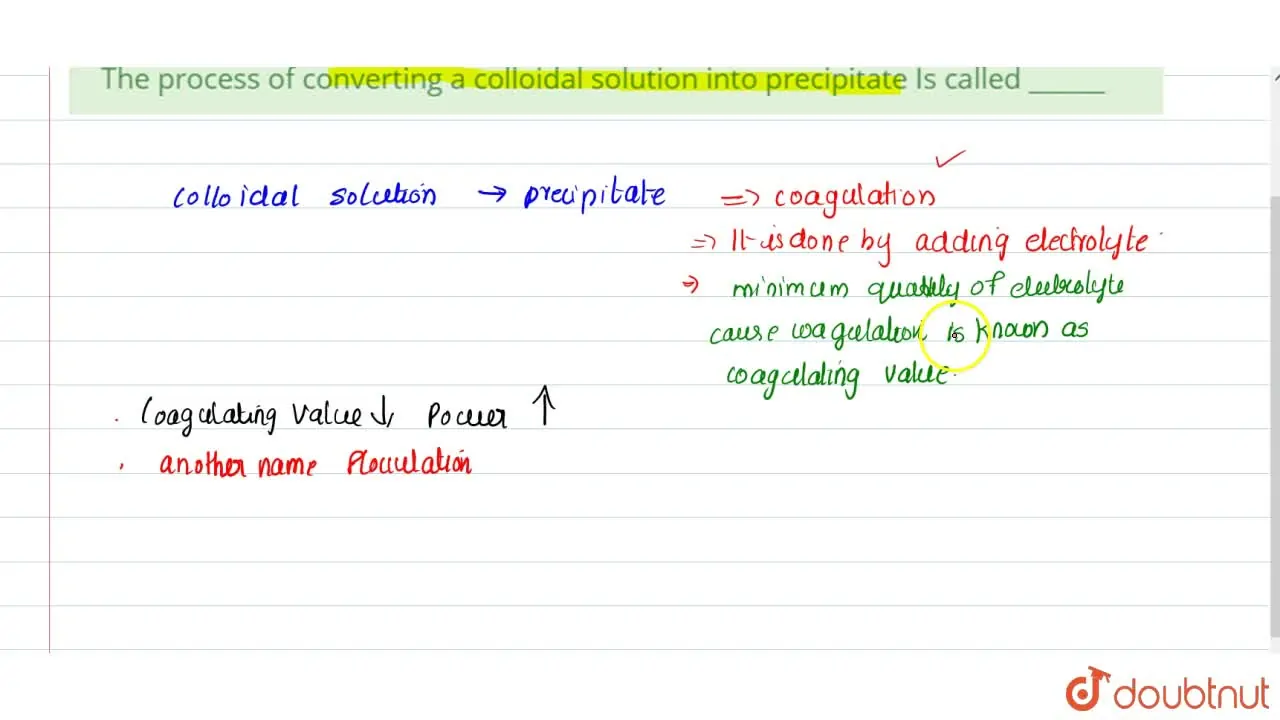 The process of converting a colloidal solution into precipitate Is called ______
colloidal solution → precipitate ⇒ coagulation ✓
⇒ It is done by adding electrolyte
⇒ minimum quantity of electrolyte
cause coagulation is known as
coagulating value.
. Coagulating value ↓, Power ↑
. another name Flocculation
doubtnut